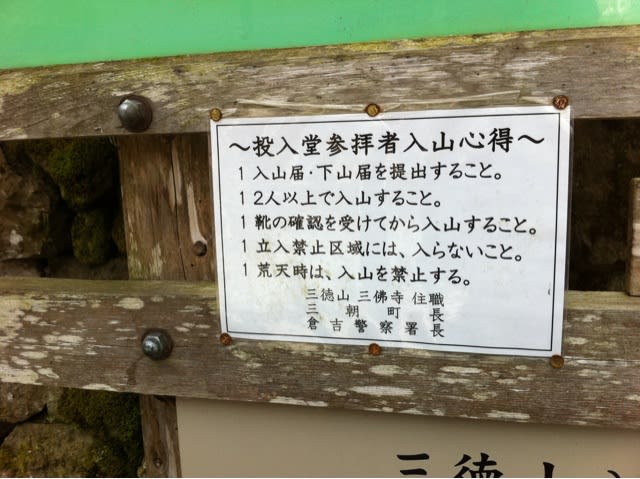 ～投入堂参拝者入山心得～
1 入山届・下山届を提出すること。
1 2人以上で入山すること。
1 靴の確認を受けてから入山すること。
1 立入禁止区域には、入らないこと。
1 荒天時は、入山を禁止する。
三徳山 三佛寺 住職
三朝町長
倉吉警察署長
三徳山